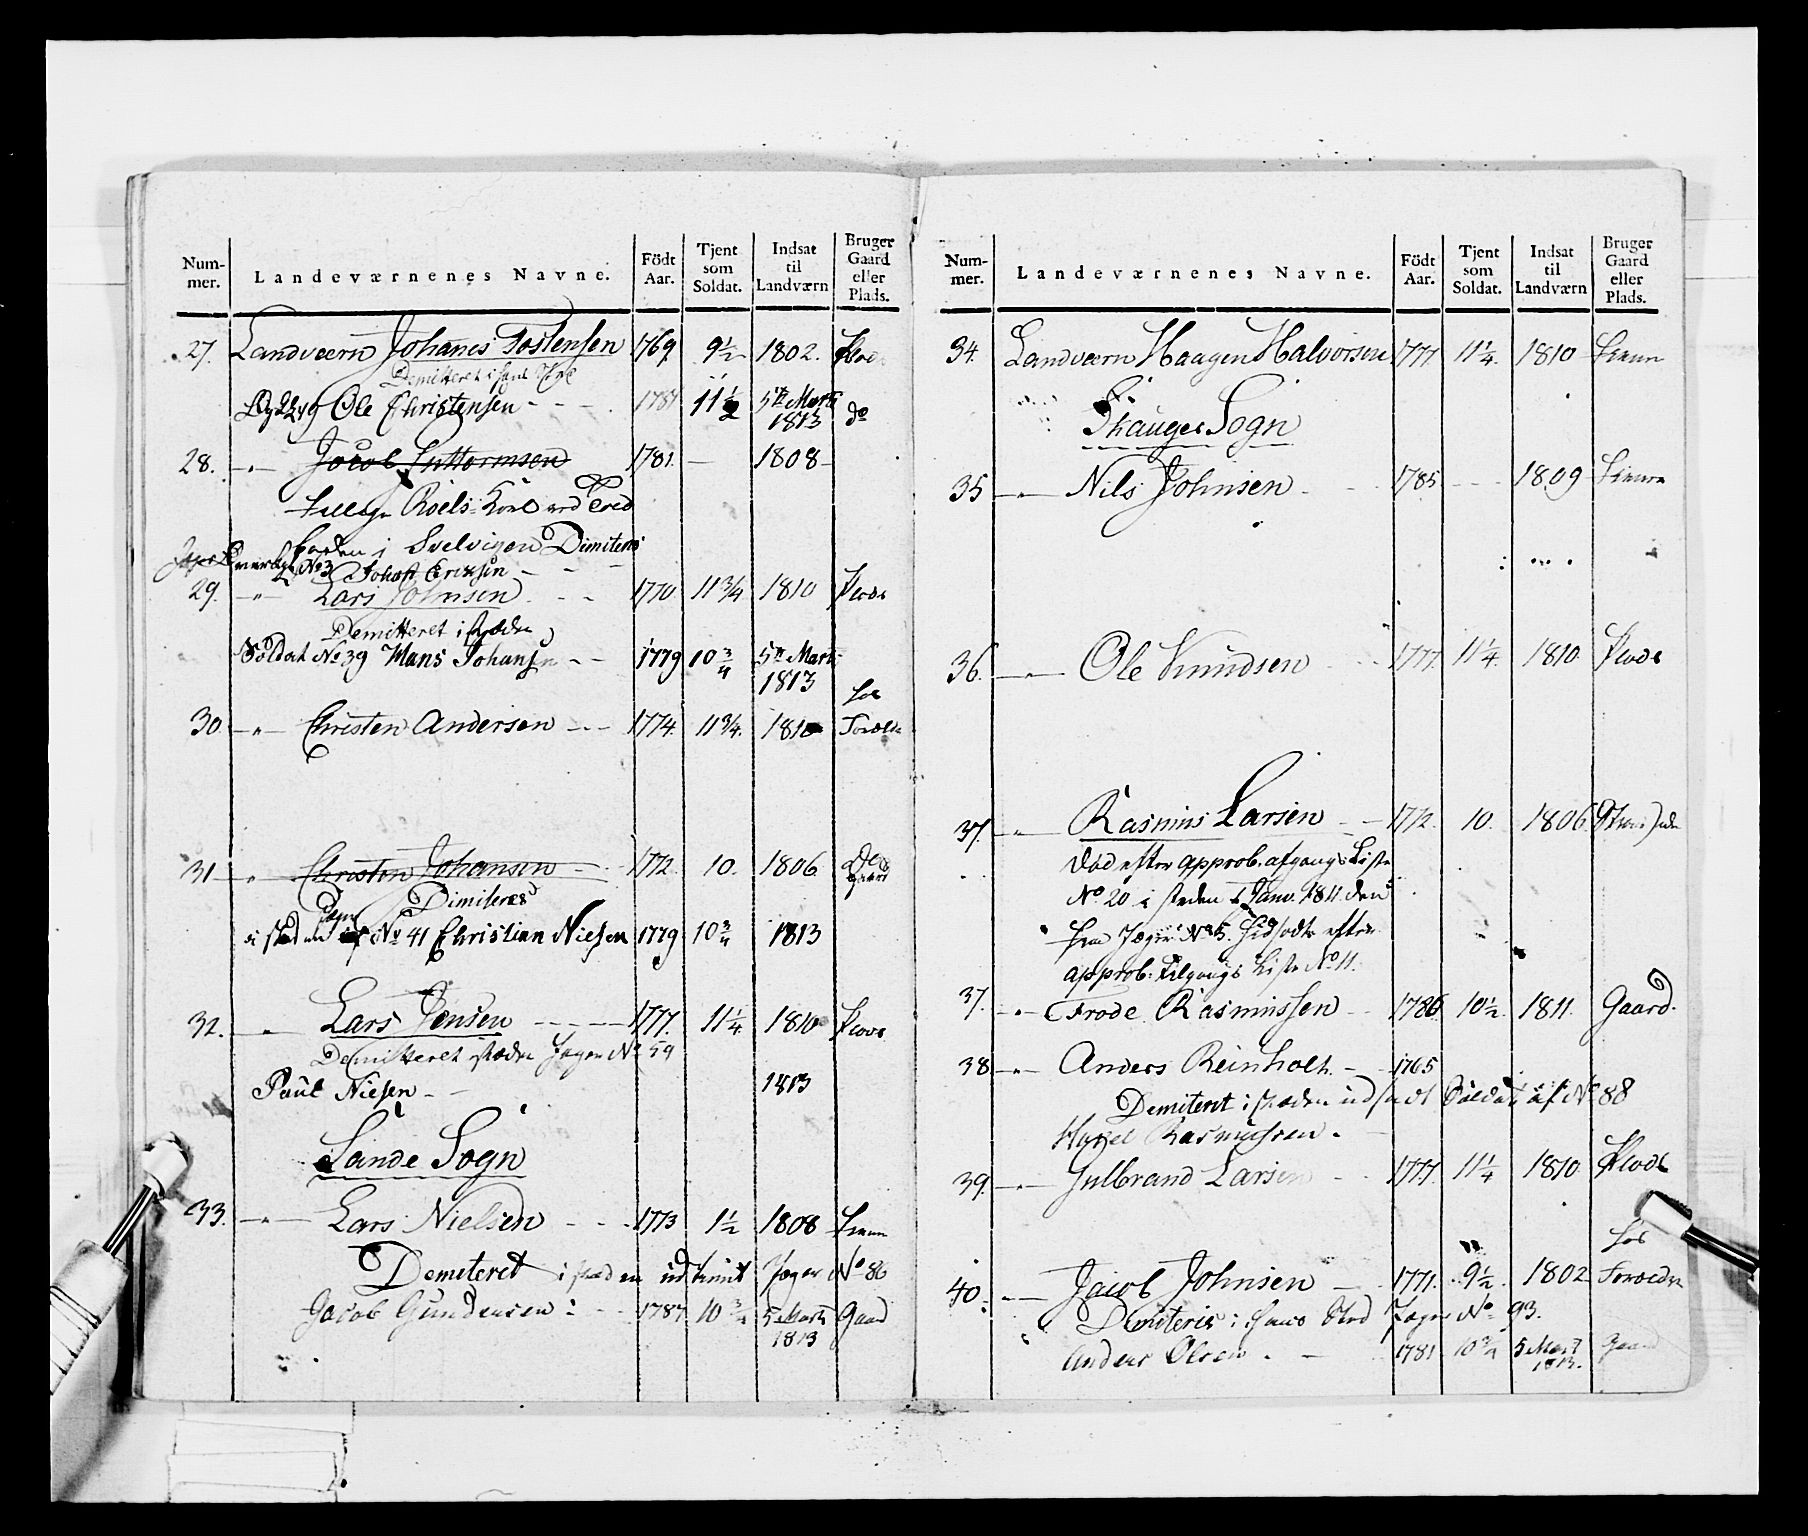 Num-
mer.
Landeværnenes Navne.
Födt
Aar.
Tjent
som
Soldat.
Indsat
til
Landværn
Bruger
Gaard
eller
Plads.
27. Landværn Johanes Tostensen 1769 9½ 1802.
Demitteret i
Ole Christensen - - 1787 11½ 5te Marti
1813 do
28. -"- Jacob Guttormsen 1781. - 1808 -
Roels ved
i Svelvigen Dimiteres
No 3 Johan Erixsen - - -
29. -"- Lars Johnsen - - 1770 11¾ 1810 Plads
Demitteret i stæden
Soldat No 39 Hans Johansen - - 1779 10¾ 5te Marti
1813
hos
30 -"- Christen Andersen - - 1774. 11¾. 1810 Foræld
31 -"- Christen Johansen - 1772. 10. 1806
Dimiteres
i steden No 41 Christian Nielsen 1779 10¾ 1813
32. -"- Lars Jensen - - - 1777. 11¼ 1810 Plads
Demitteret i stæden Jæger No 59
Paul Nielsen - - 1813
Sande Sogn
33. -"- Lars Nielsen - - - 1773 1½ 1808
Demiteret i stæden Jæger No 86
Jacob Gundersen - - 1787 10¾ 5 Marti Gaard
1813
Num-
mer.
Landeværnenes Navne.
Födt
Aar.
Tjent
som
Soldat.
Indsat
til
Landværn
Bruger
Gaard
eller
Plads.
34. Landværn Haagen Halvorsen 1777 11¼. 1810
Skauger Sogn
35 -"- Nils Johnsen - - 1785 - - - 1809
36. -"- Ole Knudsen - - 1777. 11¼. 1810. Plads
37. -"- Rasmus Larsen - - 1772. 10. 1806
Død efter approb. afgangs Liste
No 20 i steden 1 Janv. 1811 den
fra Jæger No 5. efter
approb. Tilgangs Liste No 11.
37. -"- Frode Rasmussen - - 1786 10½ 1811. Gaard.
38 -"- Anders Reinholt. - 1765
Demiteret i stæden Soldat af No 88
Rasmussen.
39. -"- Gulbrand Larsen - - 1777. 11¼ 1810 Plads
hos
40. - Jacob Johnsen - 1771. 9½ 1802 Forældre
Demiteris i hans Sted Jæger No 93.
Anders Olsen. - 1781 10¾ 5 Marti Gaard
1813.